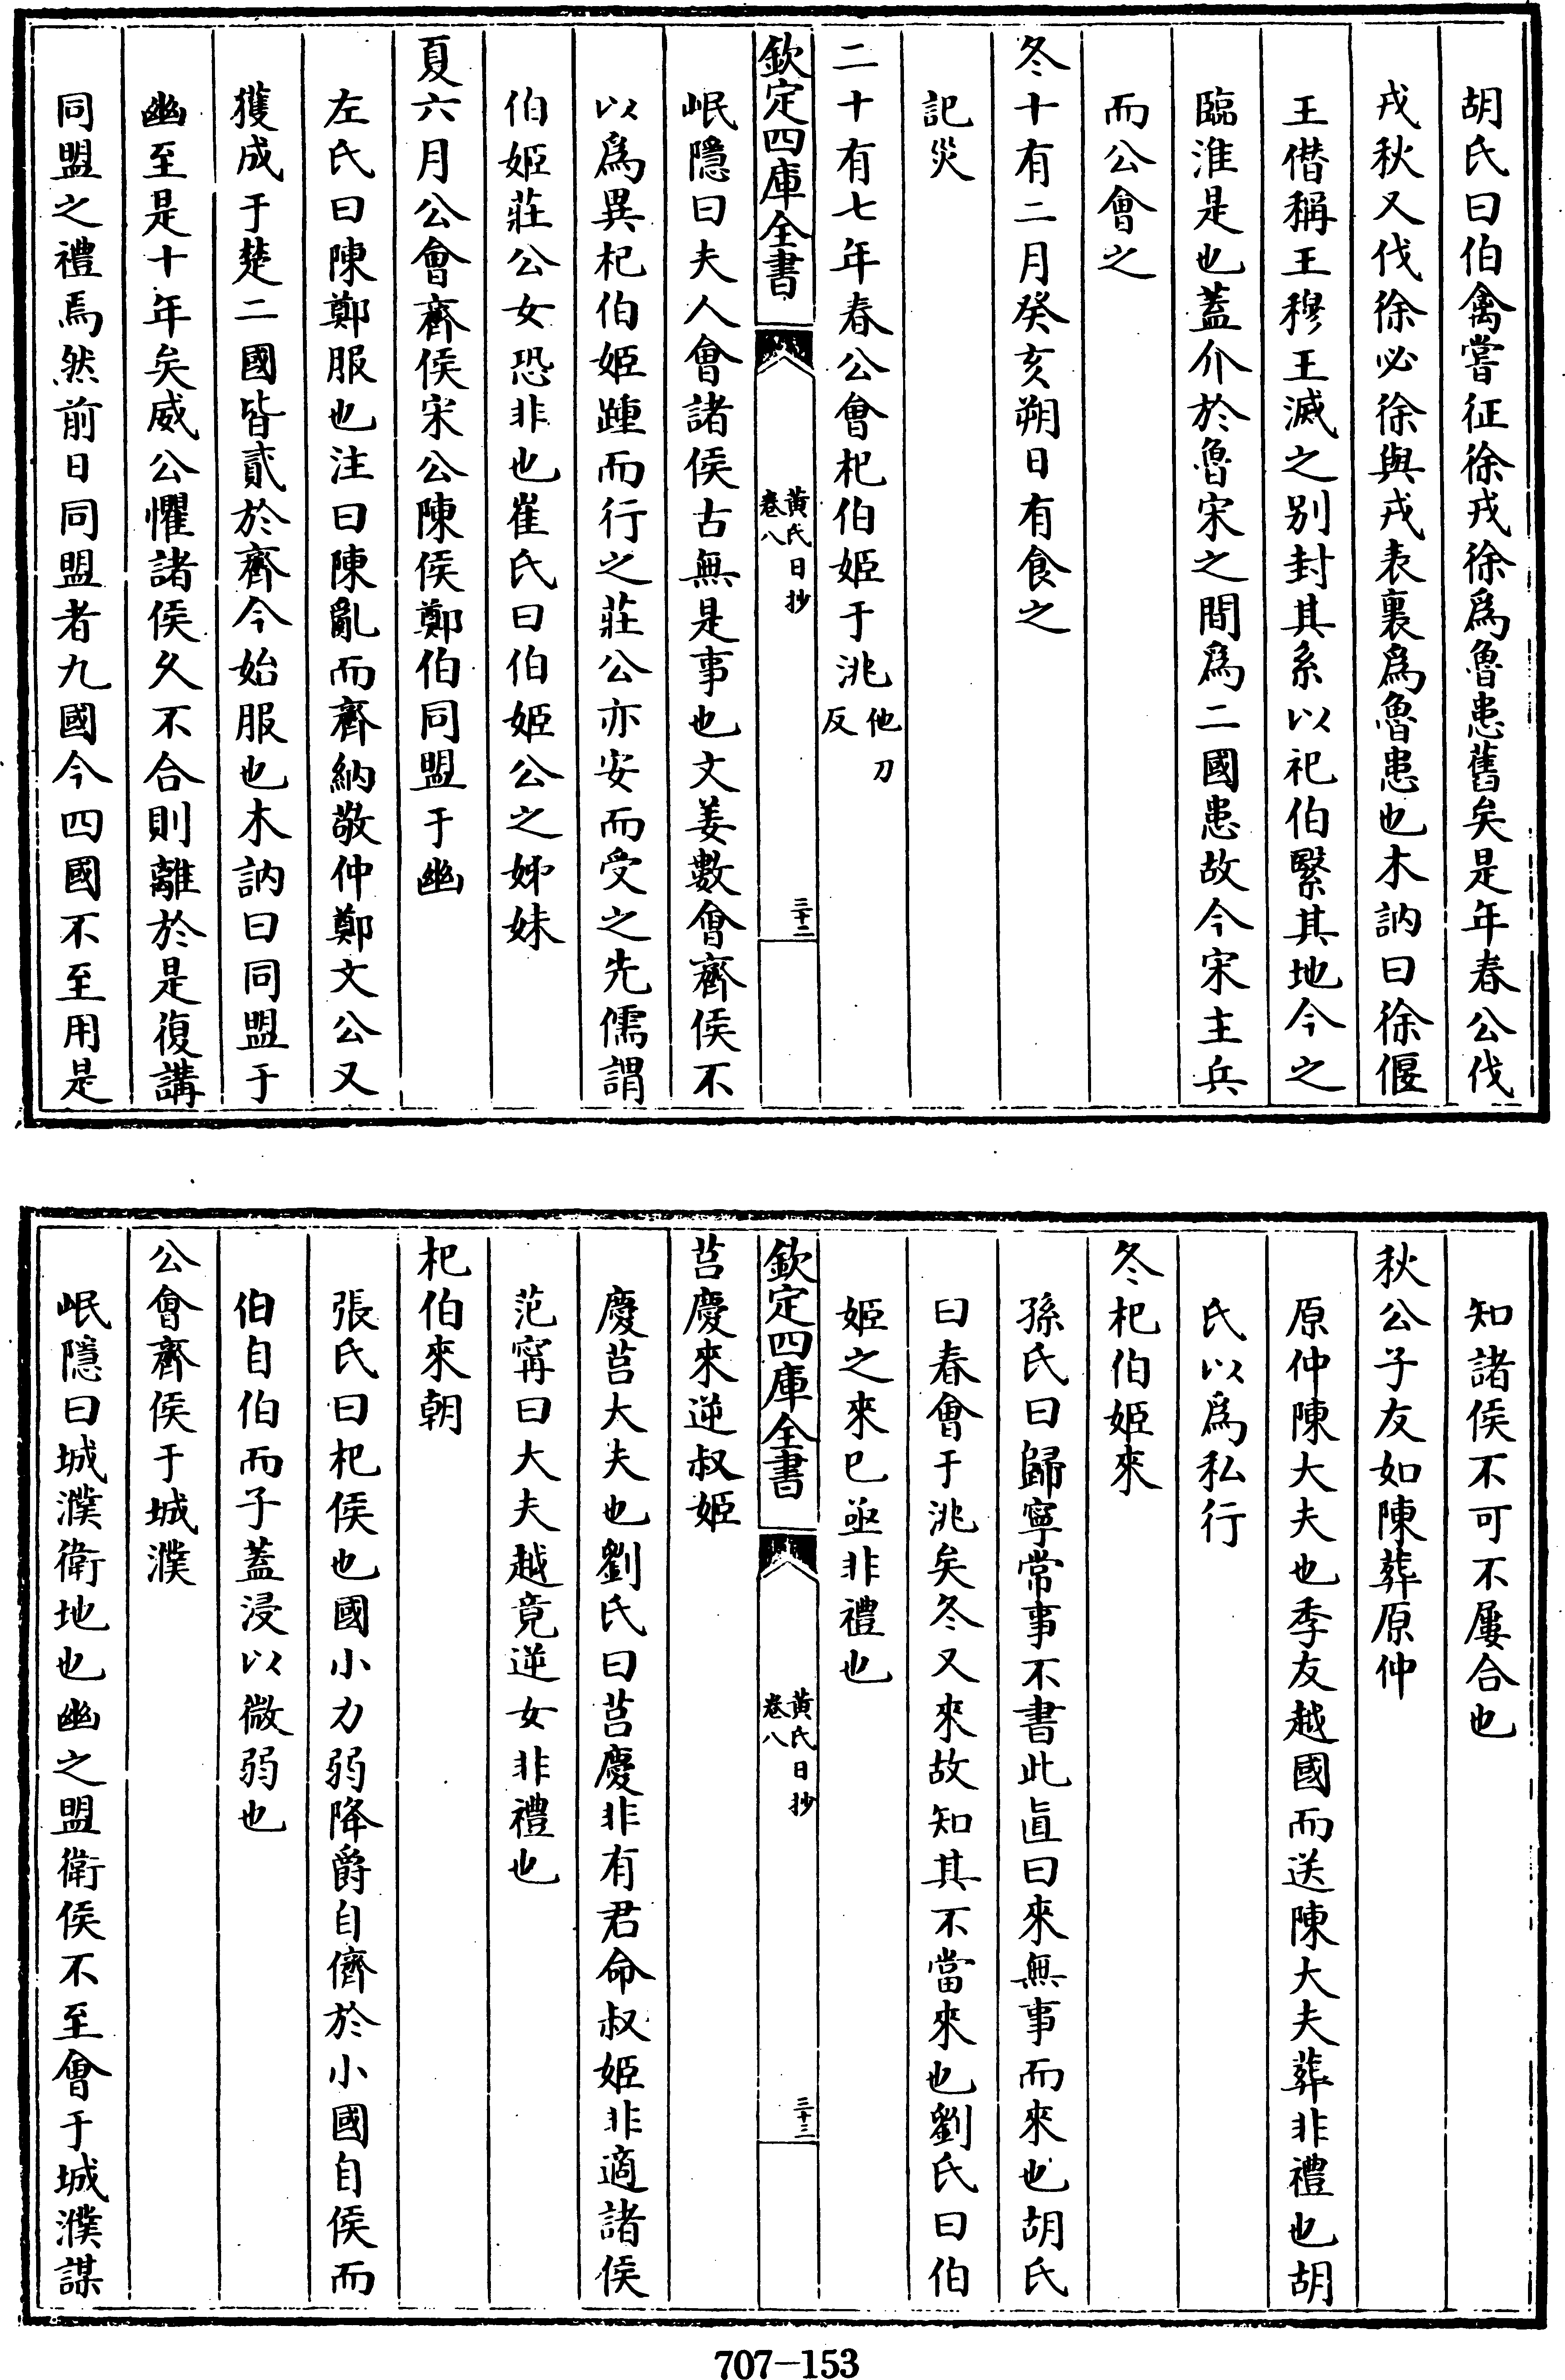 胡氏曰伯禽嘗征徐戎徐爲魯患舊矣是年春公伐
戎秋又伐徐必徐與戎表裏爲魯患也木訥曰徐偃
王僣稱王穆王滅之别封其系以祀伯緊其地今之
臨淮是也蓋介於魯宋之間爲二國患故今宋主兵
而公會之
冬十有二月癸亥朔日有食之
記災
二十有七年春公會杞伯姬于洮他刀反
欽定四庫全書
黄氏日抄
卷八
三十二
岷隱曰夫人會諸侯古無是事也文姜數會齊侯不
以爲異杞伯姬踵而行之莊公亦安而受之先儒謂
伯姬莊公女恐非也崔氏曰伯姬公之姊妹
夏六月公會齊侯宋公陳侯鄭伯同盟于幽
左氏曰陳鄭服也注曰陳亂而齊納敬仲鄭文公又
獲成于楚二國皆貳於齊今始服也木訥曰同盟于
幽至是十年矣威公懼諸侯久不合則離於是復講
同盟之禮焉然前日同盟者九國今四國不至用是
知諸侯不可不屢合也
秋公子友如陳葬原仲
原仲陳大夫也季友越國而送陳大夫葬非禮也胡
氏以爲私行
冬杞伯姬來
孫氏曰歸寧常事不書此直曰來無事而來也胡氏
曰春會于洮矣冬又來故知其不當來也劉氏曰伯
姬之來已亟非禮也
欽定四庫全書
黄氏日抄
卷八
三十三
莒慶來逆叔姬
慶莒大夫也劉氏曰莒慶非有君命叔姬非適諸侯
范寗曰大夫越竟逆女非禮也
杞伯來朝
張氏曰杞侯也國小力弱降爵自儕於小國自侯而
伯自伯而子蓋浸以微弱也
公會齊侯于城濮
岷隱曰城濮衛地也幽之盟衛侯不至會于城濮謀
707-153